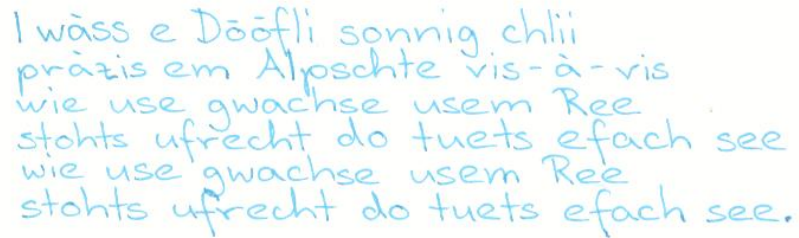 I wàss e Dōōfli sonnig chlii
pràzis em Alpschte vis-à-vis
wie use gwachse usem Ree
stohts ufrecht do tuets efach see
wie use gwachse usem Ree
stohts ufrecht do tuets efach see.